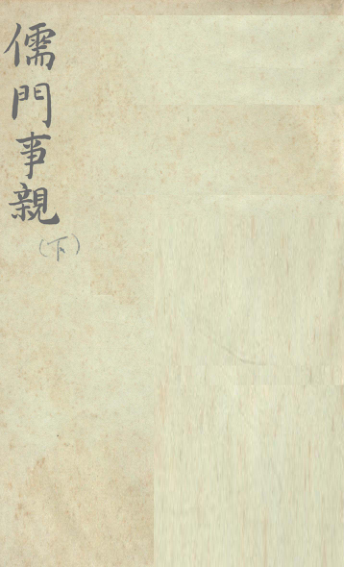 儒門事親
(下)